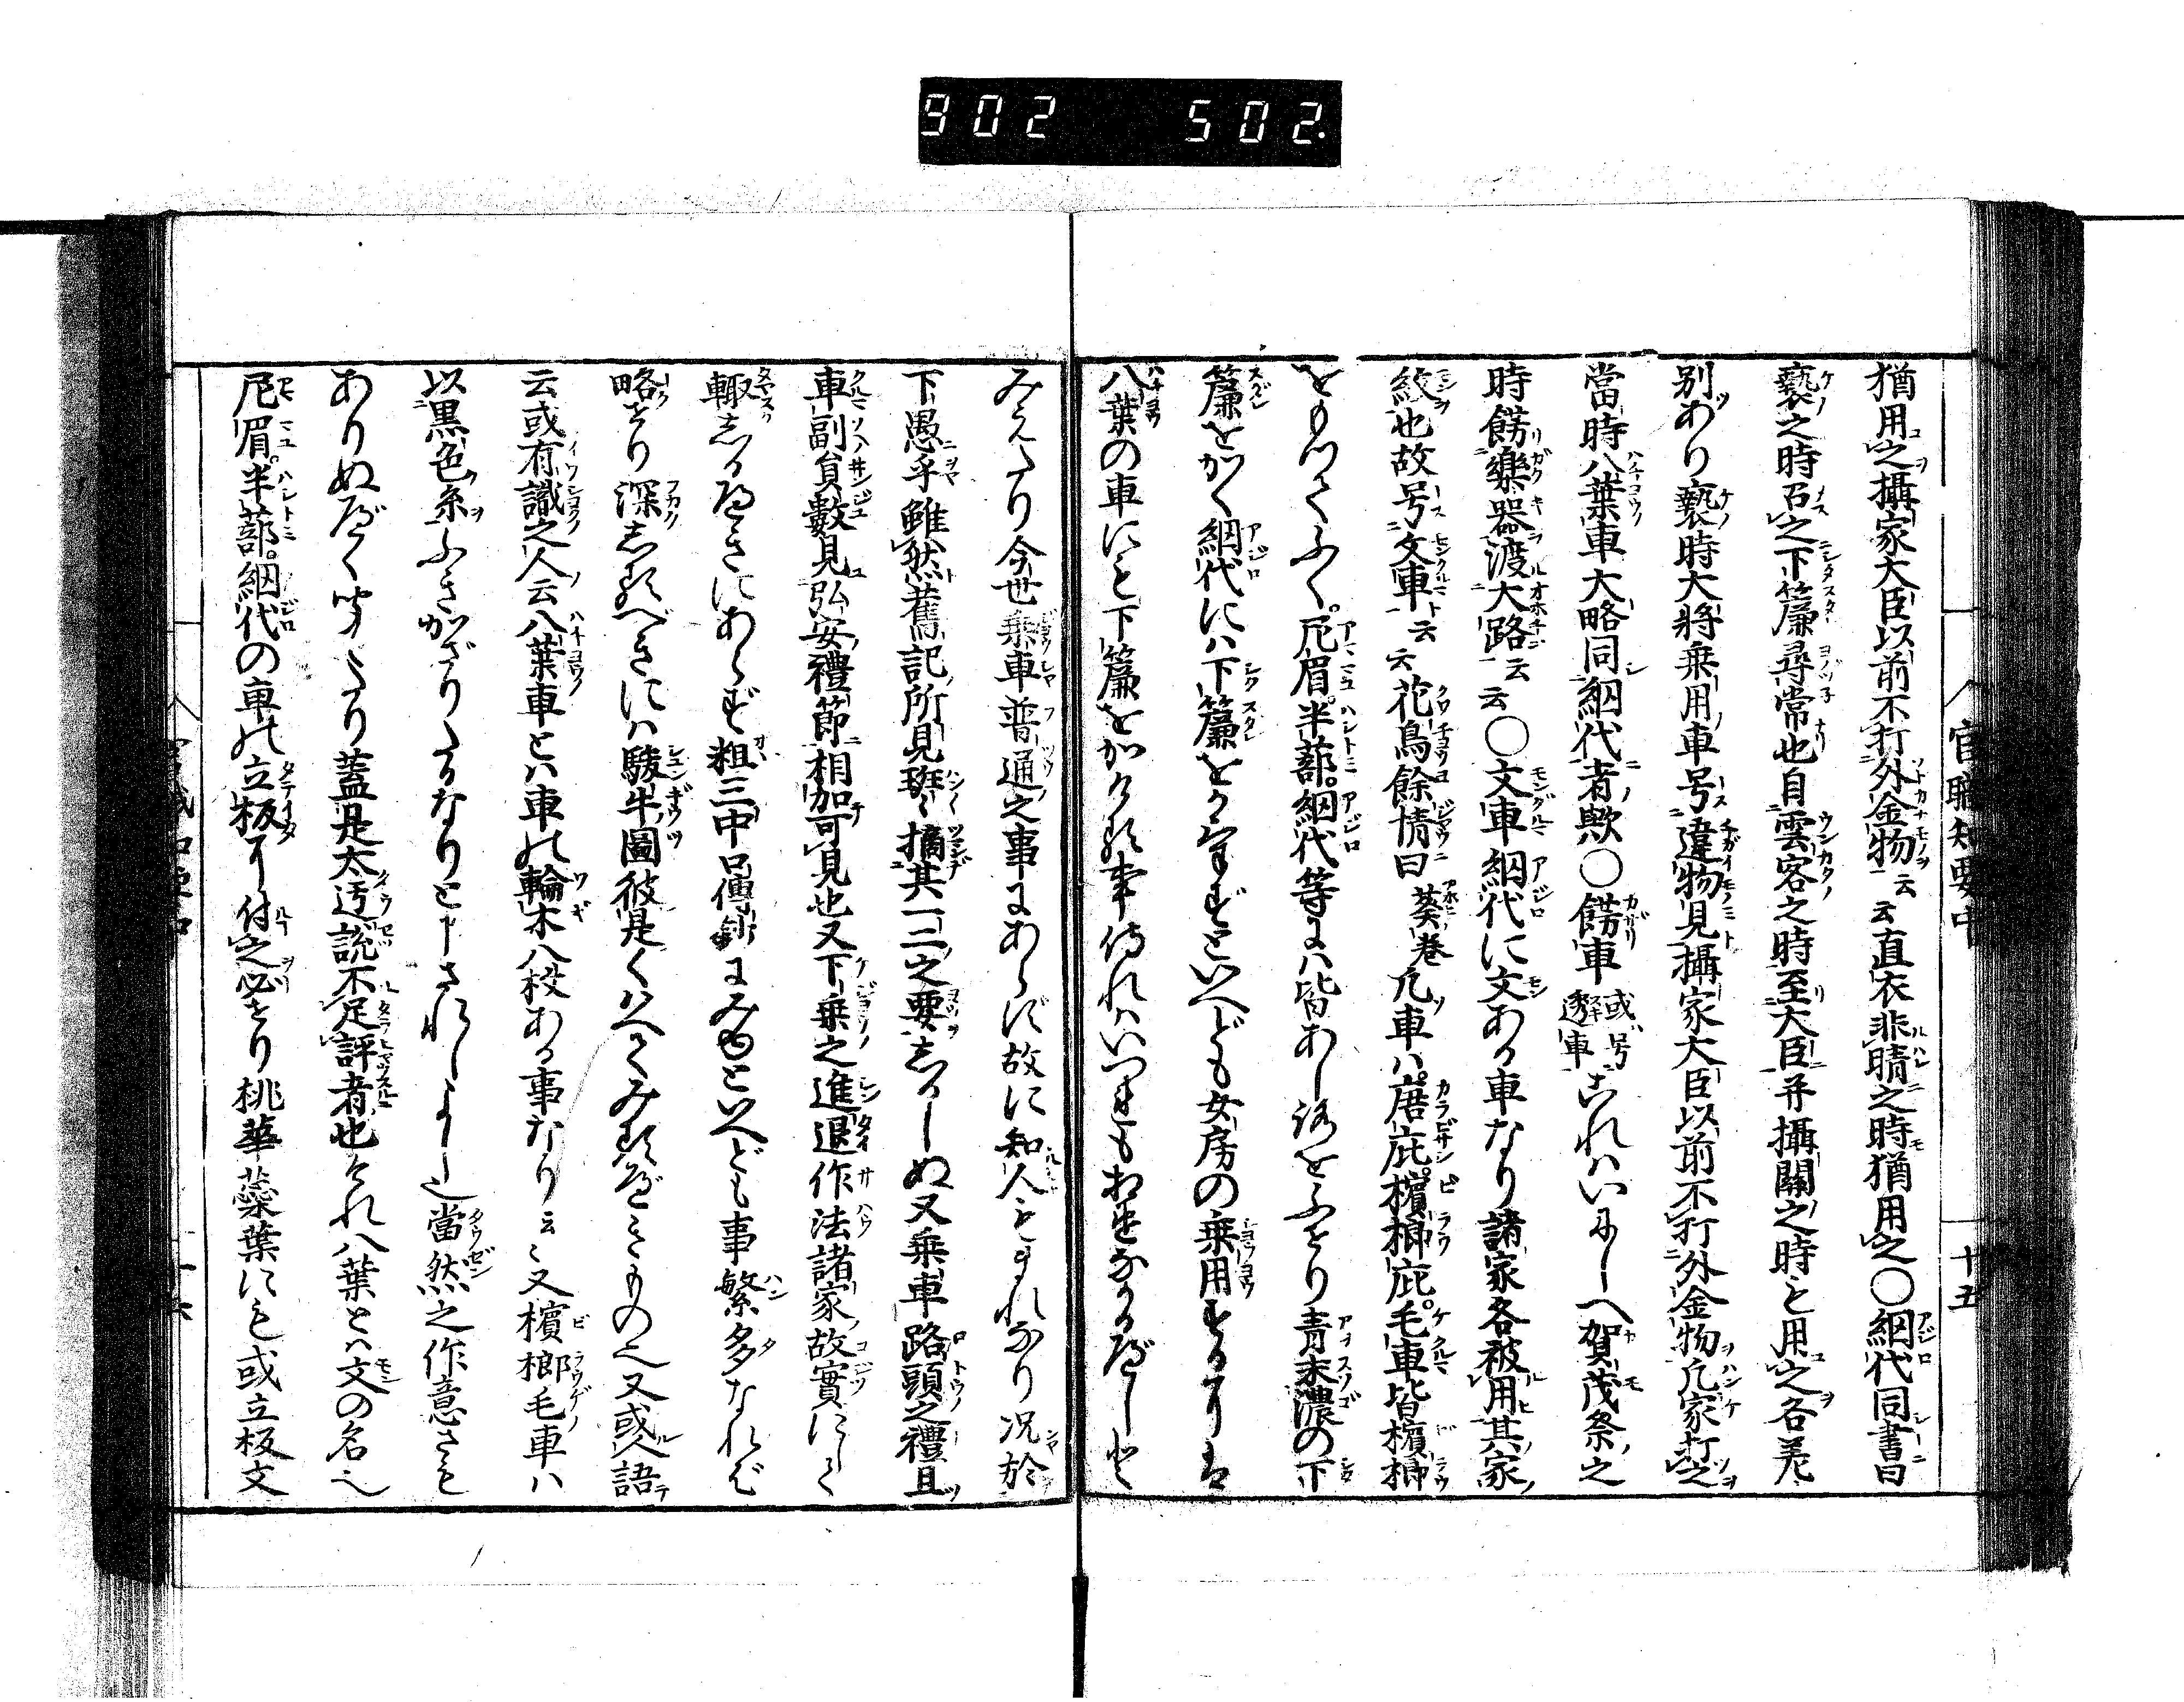 902 502.
官職知要中 十五
猶用之攝家大臣以前不打外金物云云直衣非晴之時猶用之〇網代同書曰
褻之時召之下簾尋常也自雲客之時至大臣幷攝關之時も用之各差
別あり褻時大將乘用車号違物見攝家大臣以前不打外金物凡家打之
當時八葉車大略同網代者歟〇餝車或号透車これハいにしへ賀茂祭之
時餝樂器渡大路云云〇文車網代に文ある車なり諸家各被用其家
紋也故号文車ト云云花鳥餘情曰葵卷凡車ハ唐庇檳榔庇毛車皆檳榔
をもつてふく庇眉半蔀網代等にハ皆あしろをふせり青末濃の下
簾をかく網代にハ下簾をかけずといへども女房の乘用するには
八葉の車にも下簾をかくる事侍れハいつれも相違なかるべしと
みえたり今世乘車普通之事にあらず故に知人もまれなり况於
下愚乎雖然舊記所見班々摘其一二之要しるしぬ又乘車路頭之禮且
車副員數見弘安禮節相加可見也又下乘之進退作法諸家故實にして
輙しるべきにあらず粗三中口傳鈔にみゆといへども事繁多なれば
略せり深しるべきにハ駿牛圖彼是くはへてみるべきもの也又或人語
云或有識之人云八葉車とハ車の輪木八枚ある事なり云々又檳榔毛車ハ
以黑色糸ふきかざりたるなりと申されしよし也當然之作意さも
ありぬべく聞えたり蓋是太迃說不足評者也それ八葉とハ文の名也
庇眉半蔀網代の車の立板に付之必せり桃華蘂葉にも或立板文